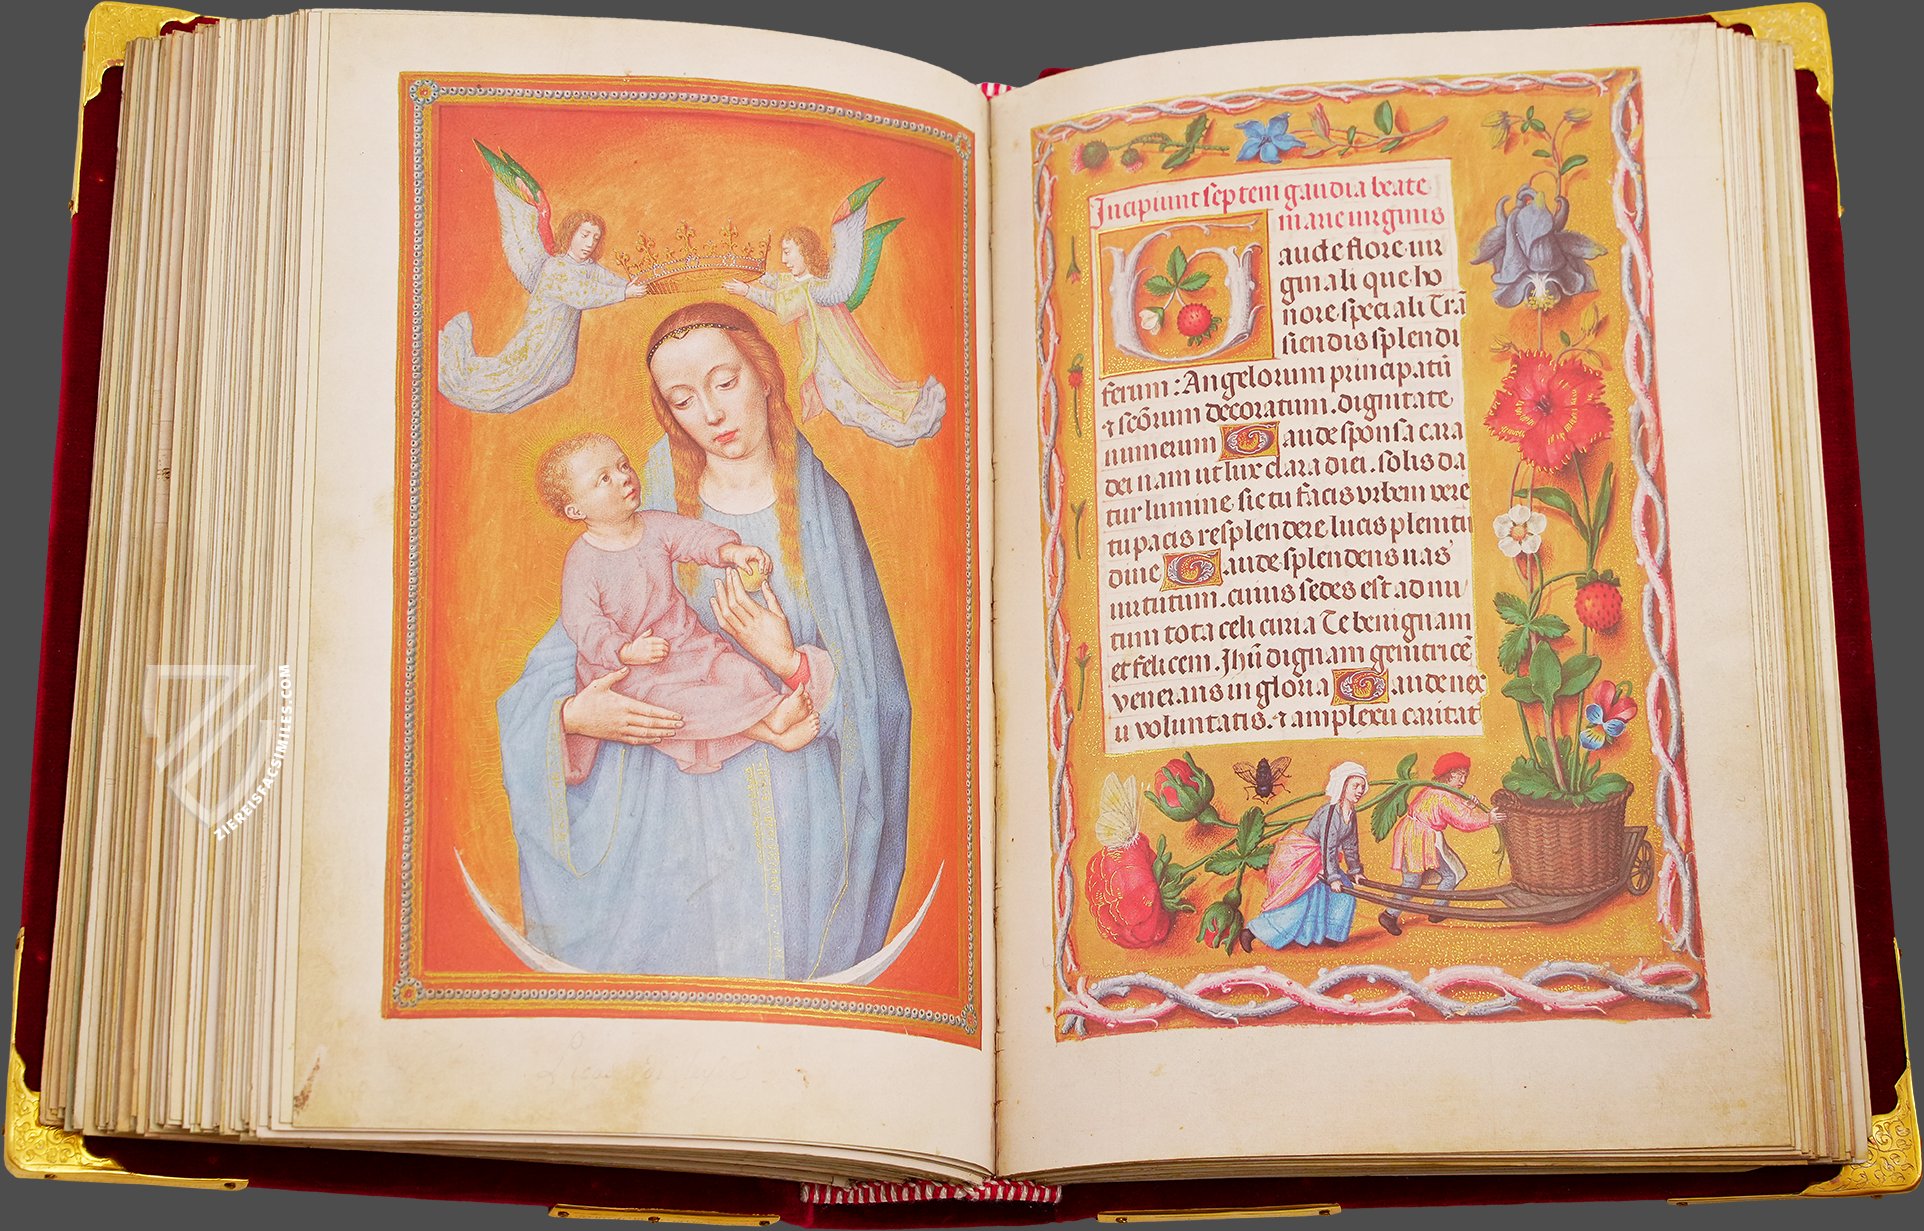 ZIEREISFACSIMILES.COM
Incipiunt septem gaudia beate
marie virginis
Gaude flore vir
ginali que ho
nore speciali Trā
siendis splendi
ferum : Angelorum principatū
⁊ scōrum decoratum . dignitate
numerum Gaude sponsa cara
dei nam ut lux clara diei . solis da
tur lumine . sic tu facis orbem vere
tu pacis resplendere lucis plenitu
dine Gaude splendens uas
uirtutum . cuius sedes est ad nu
tum tota celi curia Te benignam
et felicem . Jhū dignam genitricē
venerans in gloria Gaude nex
u voluntatis . ⁊ amplexu caritat